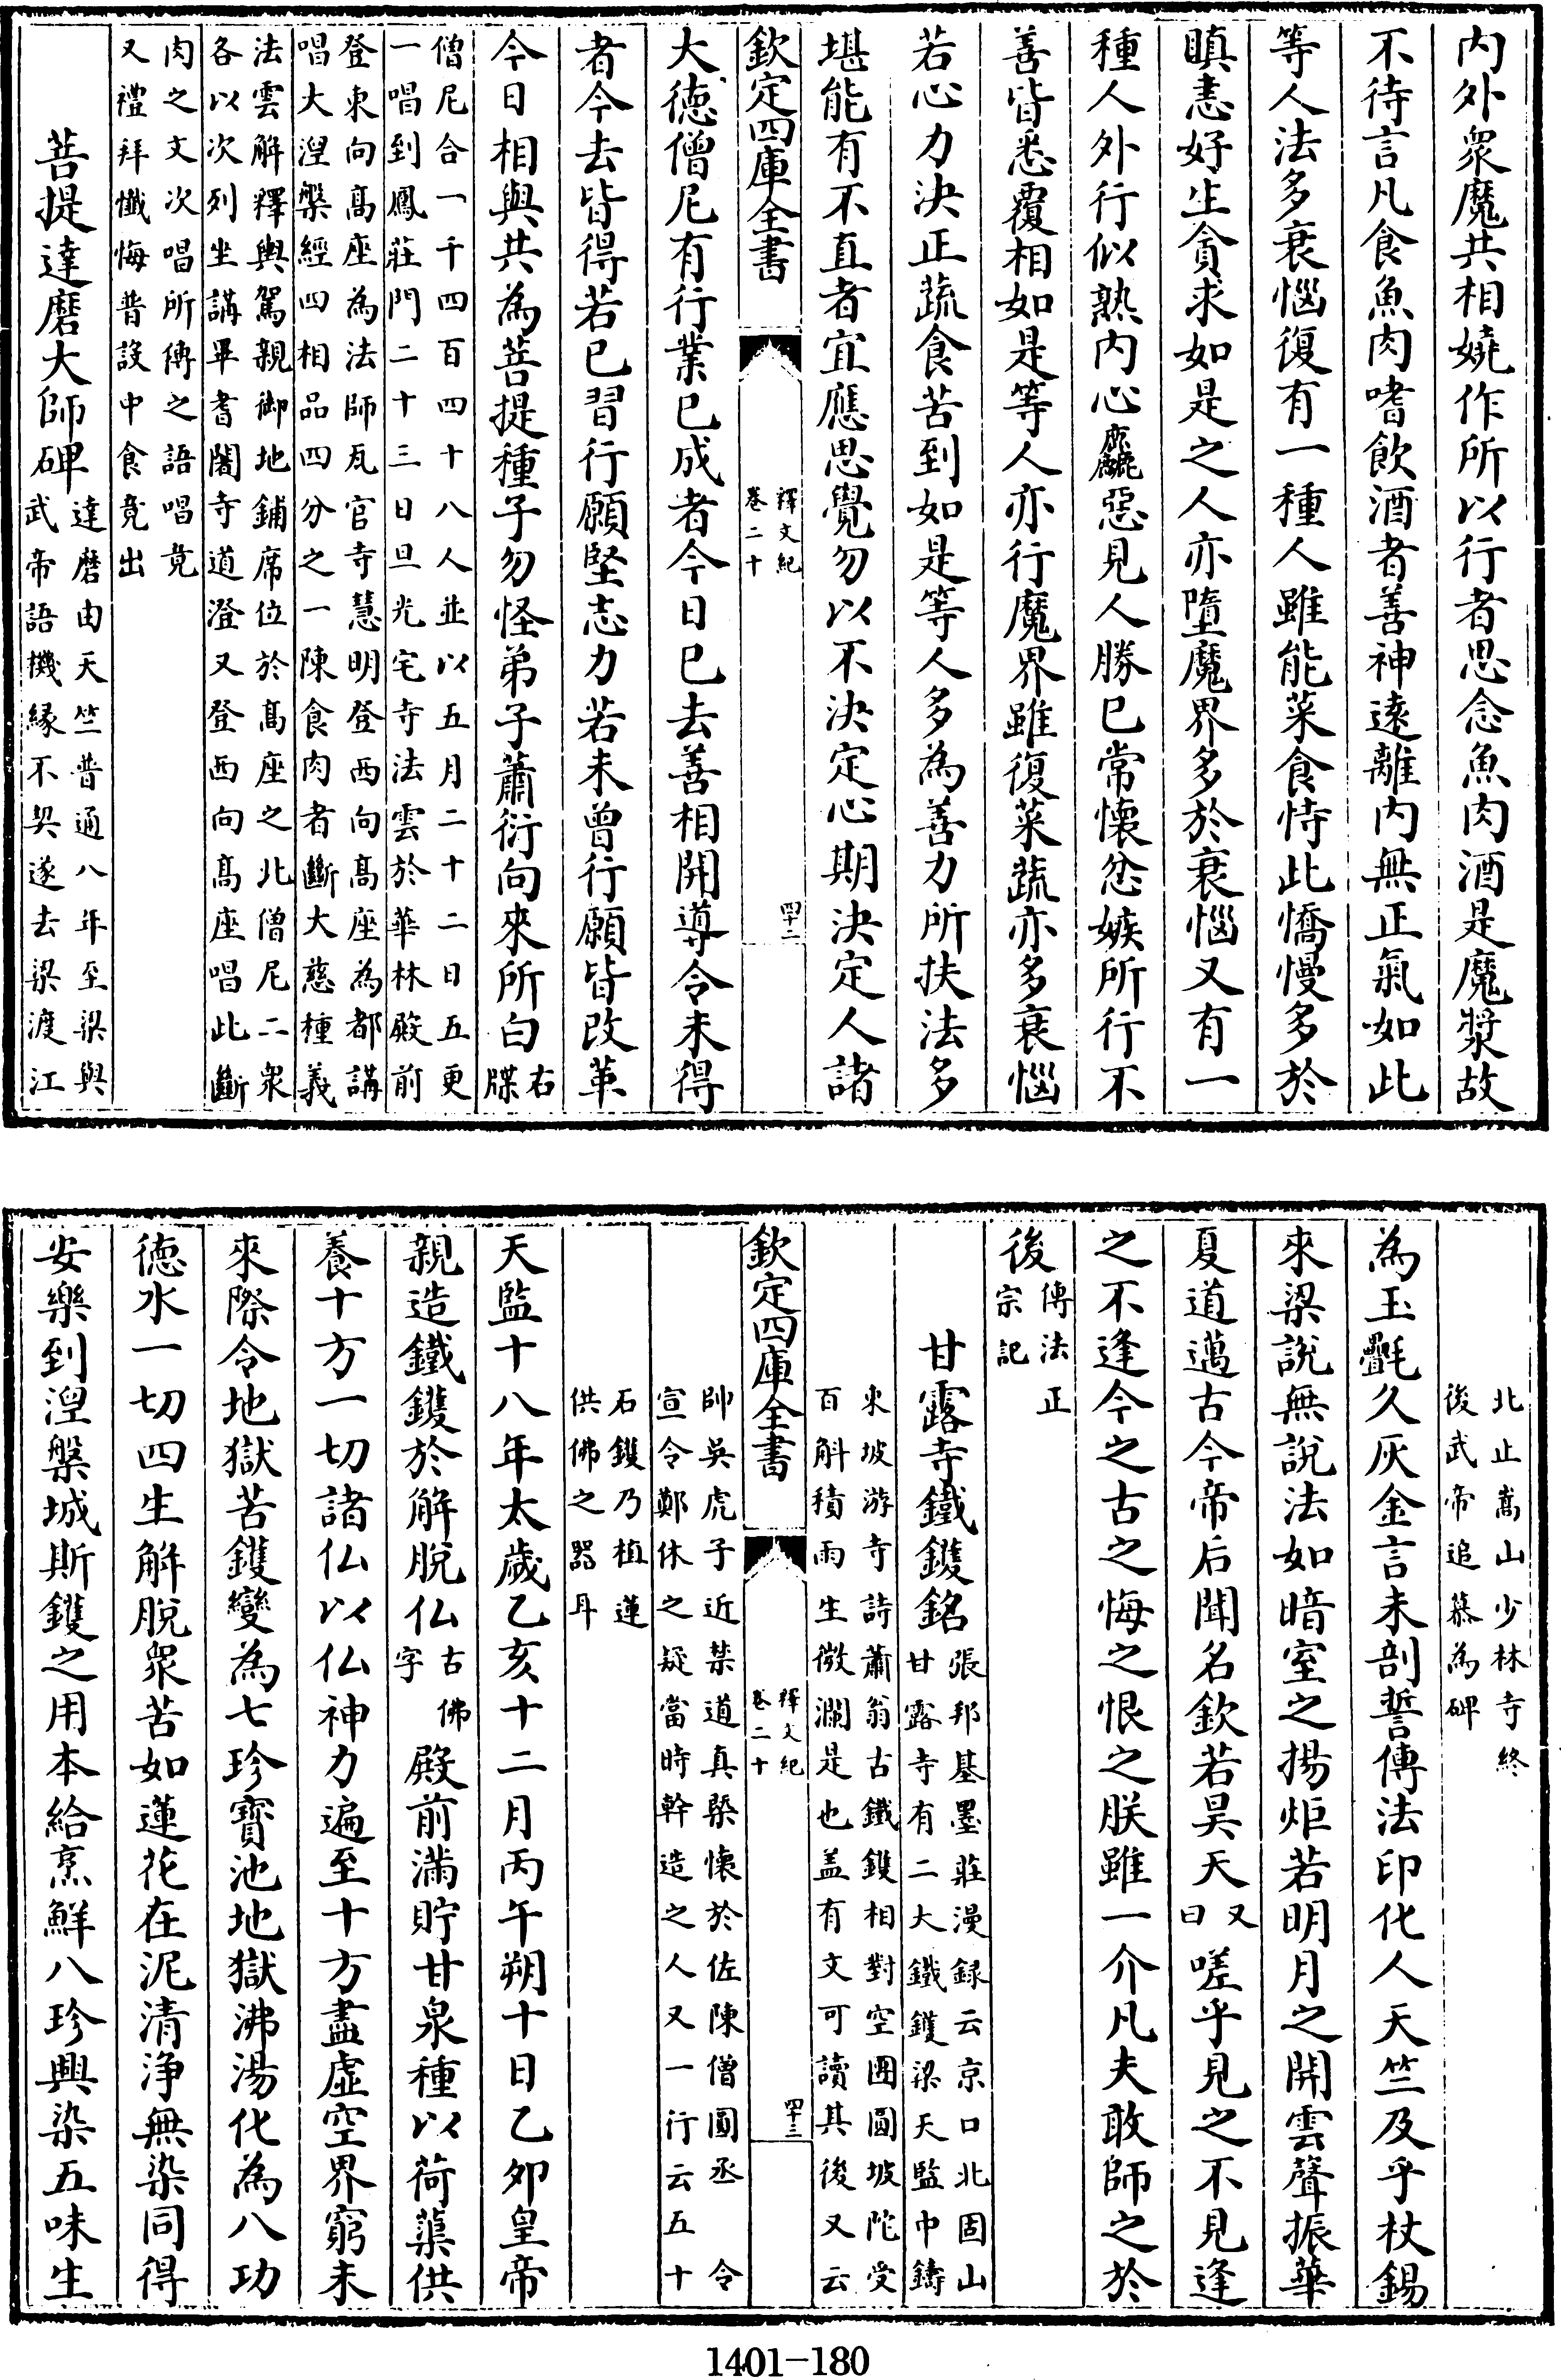 內外衆魔共相嬈作所以行者思念魚肉酒是魔漿故
不待言凡食魚肉嗜飲酒者善神逺離内無正氣如此
等人法多衰惱復有一種人雖能菜食恃此憍慢多於
瞋恚好生貪求如是之人亦墮魔界多於衰惱又有一
種人外行似熟内心麤惡見人勝已常懐忿嫉所行不
善皆悉覆相如是等人亦行魔界雖復菜蔬亦多衰惱
若心力決正蔬食苦到如是等人多為善力所扶法多
堪能有不直者宜應思覺勿以不決定心期決定人諸
欽定四庫全書
釋文紀
卷二十
四十二
大徳僧尼有行業已成者今日已去善相開導令未得
者今去皆得若已習行願堅志力若未曾行願皆改革
今日相與共為菩提種子勿怪弟子蕭衍向來所白右
牒
僧尼合一千四百四十八人並以五月二十二日五更
一唱到鳳莊門二十三日旦光宅寺法雲於華林殿前
登東向髙座為法師瓦官寺慧明登西向髙座為都講
唱大湼槃經四相品四分之一陳食肉者斷大慈種義
法雲解釋輿駕親御地鋪席位於髙座之北僧尼二衆
各以次列坐講畢耆闍寺道澄又登西向髙座唱此斷
肉之文次唱所傳之語唱竟
又禮拜懺悔普設中食竟出
菩提達磨大師碑達磨由天竺普通八年至梁與
武帝語機縁不契遂去梁渡江
北止嵩山少林寺終
後武帝追慕為碑
為玉㲲久灰金言未剖誓傳法印化人天竺及乎杖錫
來梁説無説法如暗室之揚炬若明月之開雲聲振華
夏道邁古今帝后聞名欽若昊天又
曰嗟乎見之不見逢
之不逢今之古之悔之恨之朕雖一介凡夫敢師之於
後傳法正
宗記
甘露寺鐵鑊銘張邦基墨莊漫録云京口北固山
甘露寺有二大鐵鑊梁天監中鑄
東坡游寺詩蕭翁古鐵鑊相對空團圓坡陀受
百斛積雨生微瀾是也盖有文可讀其後又云
欽定四庫全書
釋文紀
卷二十
四十三
帥吳虎子近禁道真槩懐於佐陳僧圓丞　令
宣令鄭休之疑當時幹造之人又一行云五十
石鑊乃植蓮
供佛之器耳
天監十八年太歲乙亥十二月丙午朔十日乙夘皇帝
親造鐵鑊於解脱仏古佛
字殿前滿貯甘泉種以荷蕖供
養十方一切諸仏以仏神力遍至十方盡虛空界窮未
來際令地獄苦鑊變為七珍寳池地獄沸湯化為八功
徳水一切四生解脱衆苦如蓮花在泥清浄無染同得
安樂到湼槃城斯鑊之用本給烹鮮八珍興染五味生
1401-180